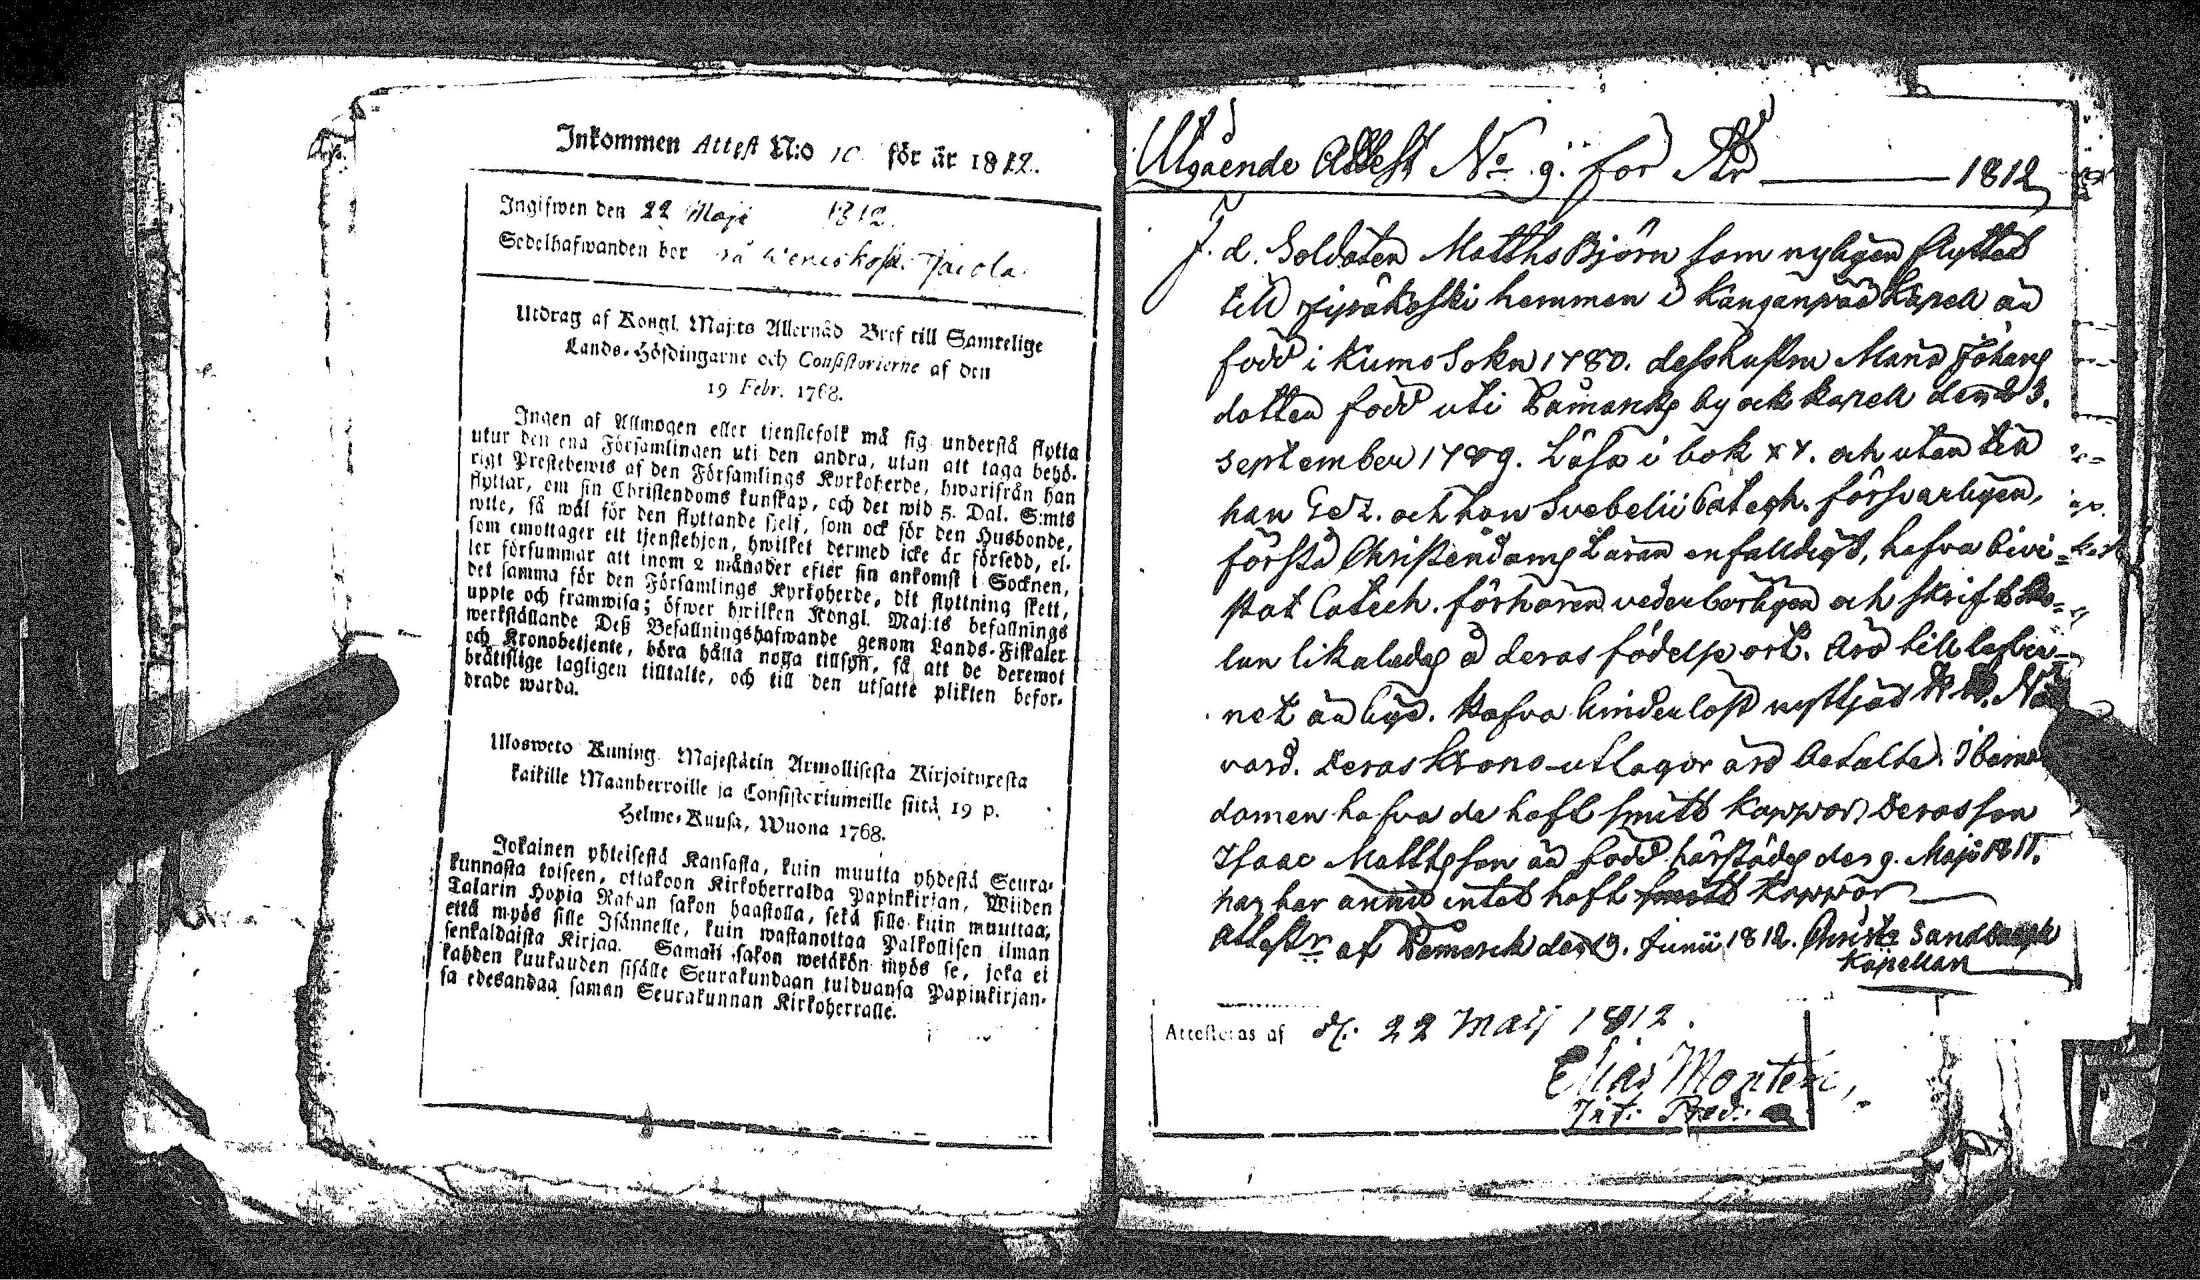 Inkommen Attest N:o 10 för år 1812.
Ingifwen den 22 Maji 1812.
Sedelhafwanden bor på
Utdrag af Kongl. Maj:ts Allernåd Bref till Samtelige
Lands-Höfdingarne och Consistorierne af den
19 Febr. 1768.
Ingen af Allmogen eller tjenstefolk må sig understå flytta
utur den ena Församlingen uti den andra, utan att taga behö-
rigt Prestebewis af den Församlings Kyrkoherde, hwarifrån han
flyttar, om sin Christendoms kunskap, och det wid 5. Dal. S:mts
wite, så wäl för den flyttande sielf, som ock för den Husbonde,
som emottager ett tjenstehjon, hwilket dermed icke är försedd, el-
ler försummar att inom 2 månader efter sin ankomst i Socknen,
det samma för den Församlings Kyrkoherde, dit flyttning skett,
uppte och framwisa; öfwer hwilken Kongl. Maj:ts befallnings
werkställande Deß Befallningshafwande genom Lands-Fiskaler
och Kronobetjente, böra hålla noga tillsyn, så att de deremot
brätislige lagligen tilltalte, och till den utsatte plikten befor-
drade warda.
Ulosweto Kuning. Majestätin Armollisesta Kirjoituxesta
kaikille Maanherroille ja Consistoriumeille siitä 19 p.
Helme-Kuusa, Wuona 1768.
Jokainen yhteisestä Kansasta, kuin muutta yhdestä Seura-
kunnasta toiseen, ottakoon Kirkoherralda Papinkirjan, Wiiden
Talarin Hopia Rahan sakon haastolla, sekä sille kuin muuttaa,
että myös sille Isännelle, kuin wastanottaa Palkollisen ilman
senkaldaista Kirjaa. Saman sakon wetäkön myös se, joka ei
kahden kuukauden sisälle Seurakundaan tulduansa Papinkirjan-
sa edesandaa saman Seurakunnan Kirkoherralle.
Utgående Attest No 9. för År 1812
F. d. Soldaten Matths Björn som nyligen flyttat
till hemman i Kanganpää Kapell är
född i Kumo Sokn 1780. dess hustru Johans
dotter född uti by och kapell den 23.
september 1789. Läsa i bok xx. och utan till
han och hon Svebelii Catech. försvarligen,
förstå Christendoms Läran enfalldigt, hafva bivi-
stat Catech. förhören vederbörligen och skrift
lun likaledes å deras födelse ort. Äro till lefver-
net ärlige. Hafva hinderlöst nyttjat H. H. Natt-
vard. Deras Krono-utlagor äro betalte. I barna
domen hafva de haft smitt koppor Deras son
Isaac Matthsson är född härstädes den 9. Maji 1811.
har ännu intet haft koppor
Attestr af den 19. Junii 1812. Christ.
Kapellan
Attesteras af d. 22 Maij 1812.
Elias